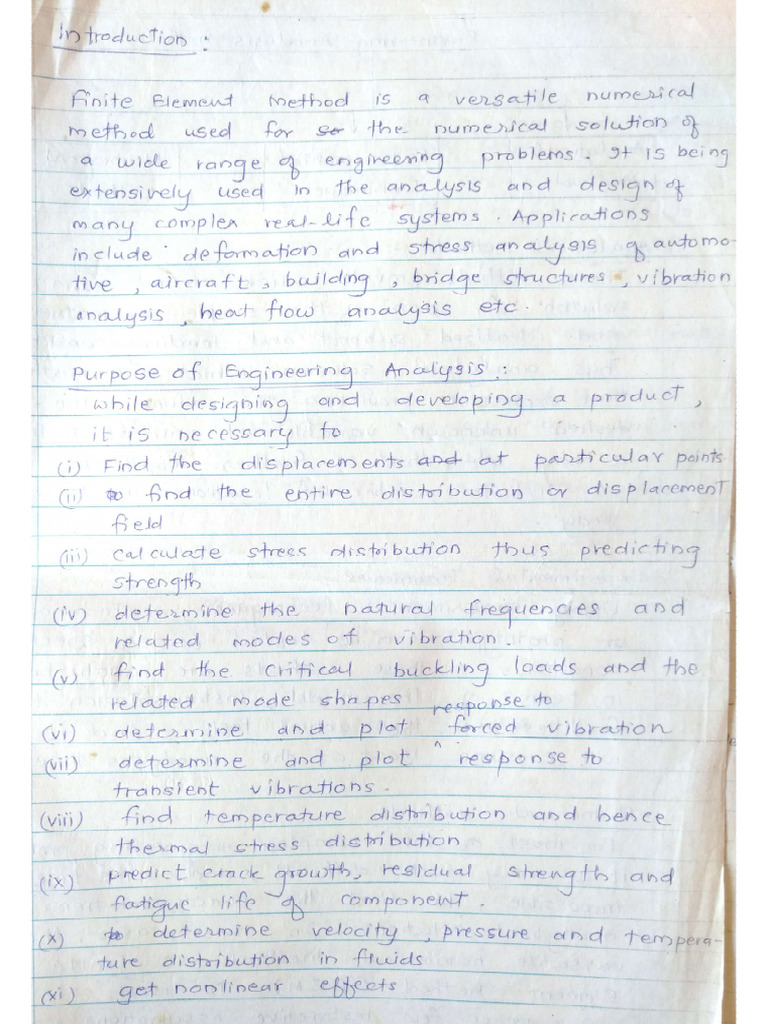 Introduction :
Finite Element Method is a versatile numerical
method used for so the numerical solution of
a wide range of engineering problems. It is being
extensively used in the analysis and design of
many complex real-life systems. Applications
include deformation and stress analysis of automo-
tive, aircraft, building, bridge structures, vibration
analysis, heat flow analysis etc.
Purpose of Engineering Analysis :
While designing and developing a product,
it is necessary to
(i) Find the displacements and at particular points
(ii) to find the entire distribution or displacement
field
(iii) calculate stress distribution thus predicting
strength
(iv) determine the natural frequencies and
related modes of vibration.
(v) find the critical buckling loads and the
related mode shapes
(vi) determine and plot response to forced vibration
(vii) determine and plot response to
transient vibrations.
(viii) find temperature distribution and hence
thermal stress distribution
(ix) predict crack growth, residual strength and
fatigue life of component.
(x) to determine velocity, pressure and tempera-
ture distribution in fluids
(xi) get nonlinear effects